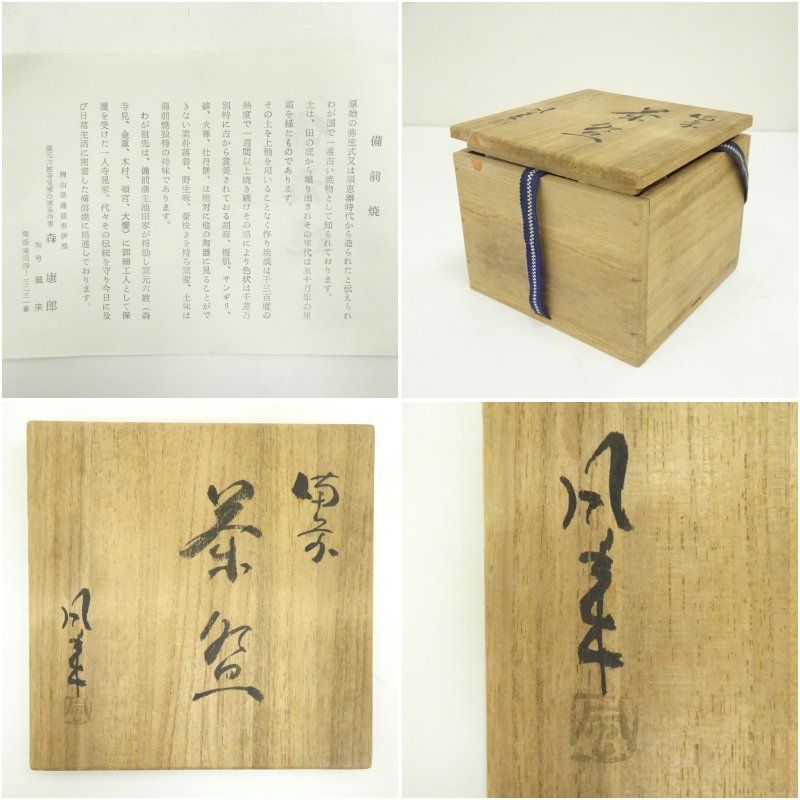 備前焼
原始の弥生式又は須恵器時代から造られたと伝えられ
わが国で一番古い焼物として知られております。
土は、田の底から掘り出されその年代は五十万年の星
霜を経たものであります。
その土を上釉を用いることなく作り焼成は千三百度の
熱度で一週間以上焼き続けその焰により色状は千差万
別特に古から賞美されておる胡麻、榎肌、サンギリ、
緋、火襷、牡丹餅、は絶対に他の陶器に見ることがで
きない素朴落着、野生味、豪快さを持ち窯変、土味は
備前焼独特の持味であります。
わが祖先は、備前藩主池田家が奨励し窯元六姓(森
寺見、金重、木村、頓宮、大饗)に御細工人として保
護を受けた一人寺見家、代々その伝統を守り今日に及
び日常生活に密着した備前焼に精進しております。
岡山県備前市伊部
窯元六姓寺見家の窯茶作家 森 康郎
陶号 風来
電話備前四-三二三一番
備前
茶盌
風来
備前
茶盌
風来
風来